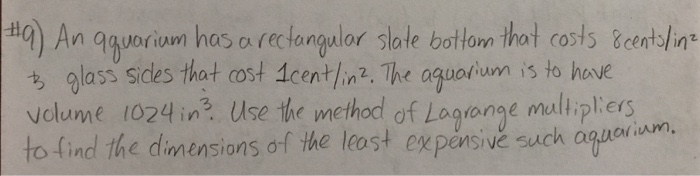 #9) An aquarium has a rectangular slate bottom that costs 8cents/in²
& glass sides that cost 1cent/in². The aquarium is to have
volume 1024 in³. Use the method of Lagrange multipliers
to find the dimensions of the least expensive such aquarium.